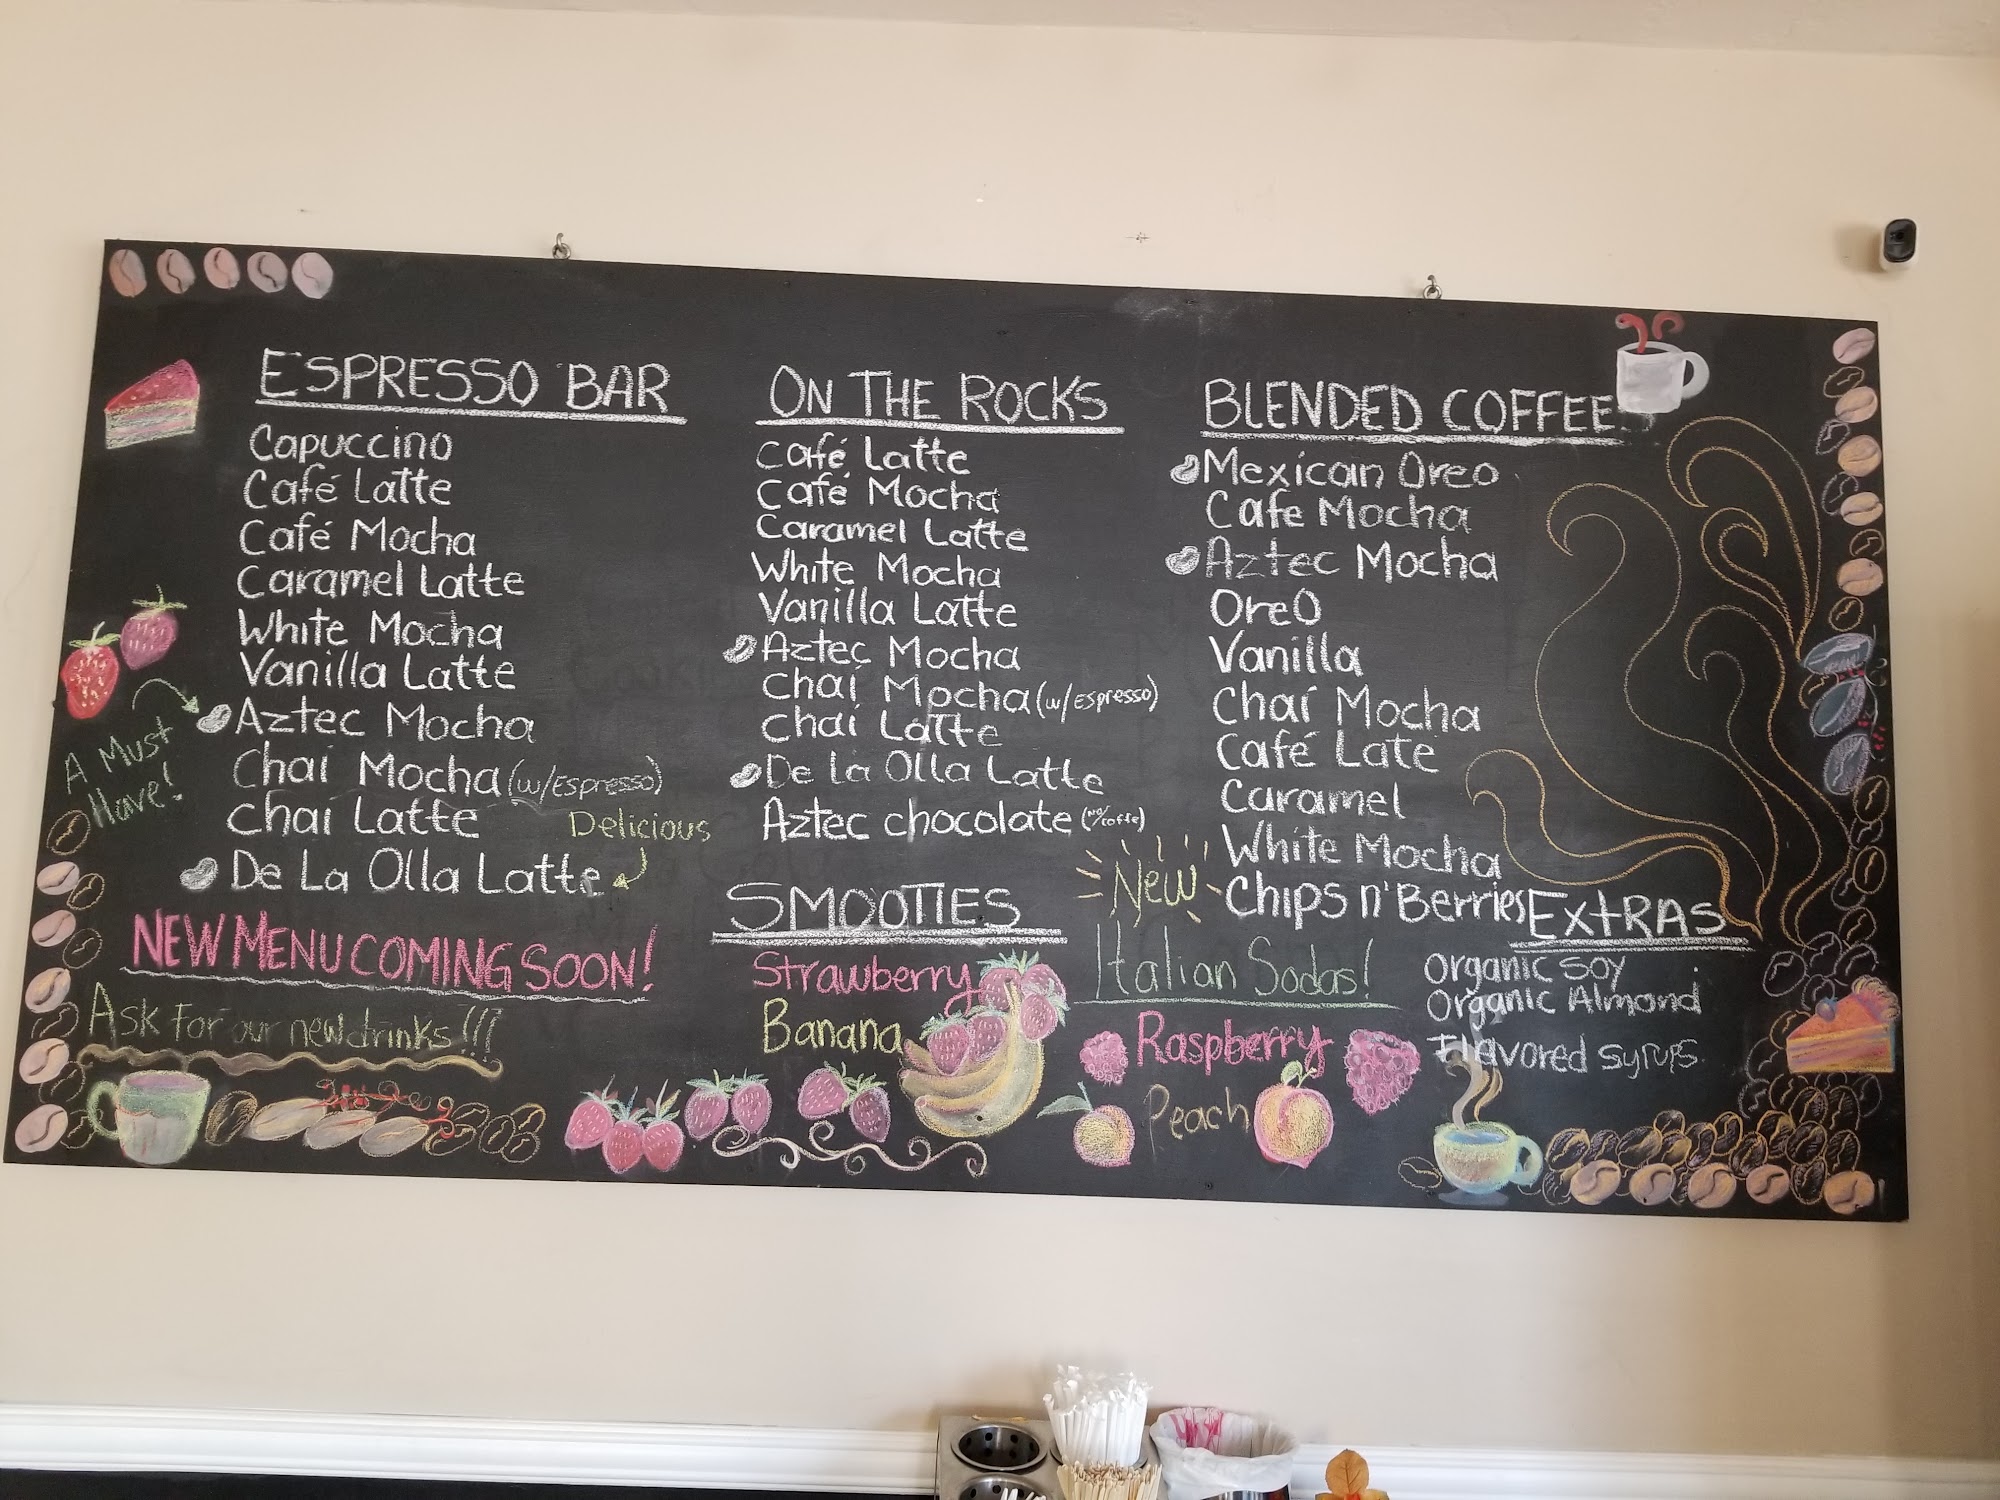 ESPRESSO BAR
Capuccino
Café Latte
Café Mocha
Caramel Latte
White Mocha
Vanilla Latte
Aztec Mocha
Chai Mocha (w/Espresso)
Chai Latte
De La Olla Latte
A Must
Have!
Delicious
NEW MENU COMING SOON!
Ask For our new drinks!!!
ON THE ROCKS
Café Latte
Café Mocha
Caramel Latte
White Mocha
Vanilla Latte
Aztec Mocha
Chai Mocha (w/Espresso)
Chai Latte
De La Olla Latte
Aztec chocolate
SMOOTIES
Strawberry
Banana
BLENDED COFFEE
Mexican Oreo
Cafe Mocha
Aztec Mocha
Oreo
Vanilla
Chai Mocha
Café Late
Caramel
White Mocha
Chips n' Berries
New
Italian Sodas!
Raspberry
Peach
EXTRAS
Organic Soy
Organic Almond
Flavored syrups